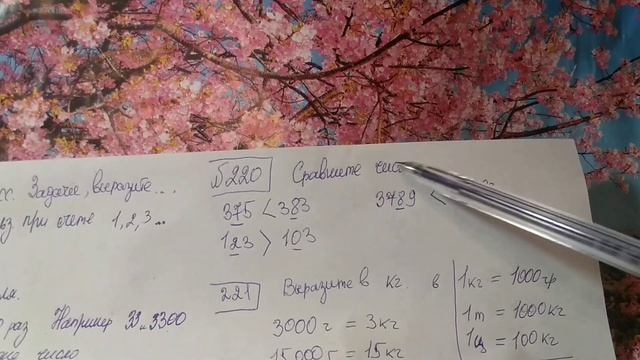 сс. Задачес, выразите...
при счете 1, 2, 3...
№220 Сравните
375 < 383 3789 <
123 > 103
221 Выразите в кг. в
1кг = 1000гр
3000 г = 3кг
1т = 1000кг
15000 г = 15кг
1ц = 100кг
раз Например 33 и 3300
число